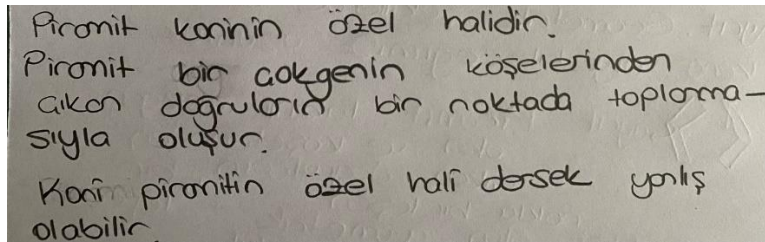 Piramit koninin özel halidir.
Piramit bir çokgenin köşelerinden
çıkan doğruların bir noktada toplanma-
sıyla oluşur.
Koni piramitin özel hali dersek yanlış
olabilir.